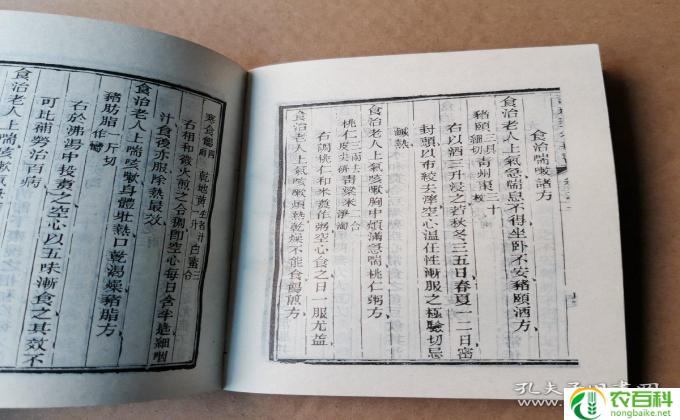 食治喘嗽諸方
食治老人上氣急喘息不得坐卧不安豬頤酒方
豬頤三具細切 青州棗三十
右以酒三升浸之若秋冬三五日春夏一二日密
封頭以布絞去滓空心温任性漸服之極驗切忌
鹹熱
食治老人上氣咳嗽胸中煩滿急喘桃仁粥方
桃仁三兩去皮尖研 青粱米二合淨淘
右調桃仁和米煮作粥空心食之日一服尤益
食治老人上氣咳嗽煩熱乾燥不能食餳煎方
寒食餳四兩 乾地黄生者汁一升 白蜜三合
右相和微火煎之令稠即空心每日含半匙細嚥
汁食後亦服除熱最效
食治老人上喘咳嗽身體壯熱口乾渴燥豬脂方
豬肪脂一斤切作臠
右於沸湯中投煮之空心以五味漸食之其效不
可比補勞治百病
食治老人上氣咳嗽
孔夫子旧书网
农百科
www.nongbaike.net